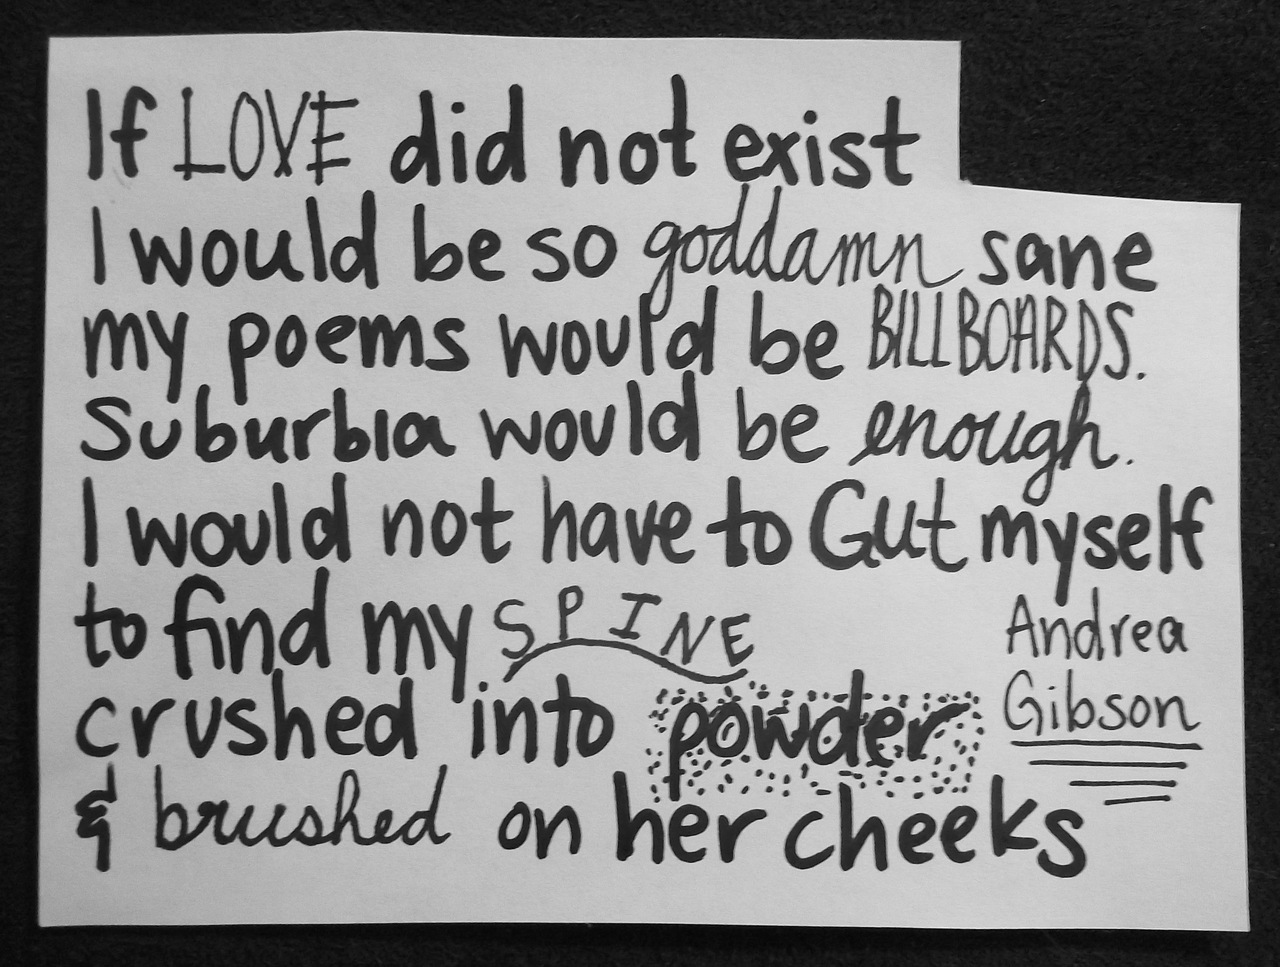 If LOVE did not exist
I would be so goddamn sane
my poems would be BILLBOARDS.
Suburbia would be enough.
I would not have to Gut myself
to find my SPINE
crushed into powder
& brushed on her cheeks
Andrea
Gibson